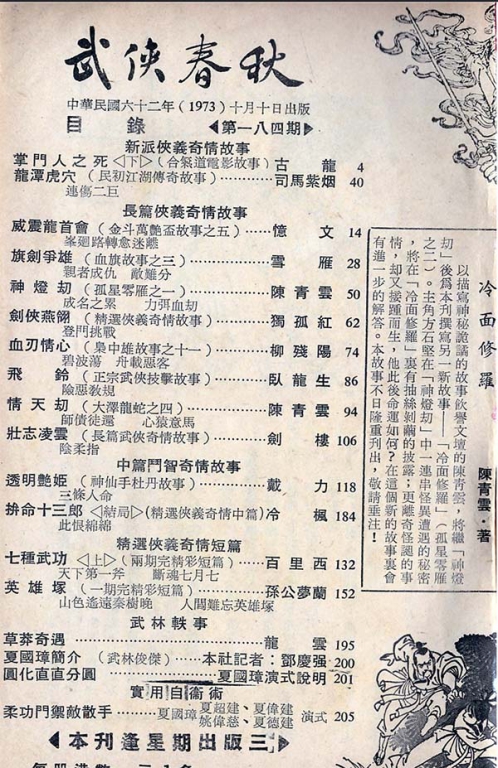 武俠春秋
中華民國六十二年（1973）十月十日出版
目錄 ◀第一八四期▶
新派俠義奇情故事
掌門人之死〈下〉（合氣道電影故事）古龍 4
龍潭虎穴（民初江湖傳奇故事）………司馬紫烟 40
連傷二巨
長篇俠義奇情故事
威震龍首會（金斗萬艷盃故事之五）……憶文 14
峯廻路轉愈迷離
旗劍爭雄（血旗故事之三）…………雪雁 28
親者成仇 敵難分
神燈刼（孤星零雁之一）…………陳青雲 50
成名之累 力弭血刼
劍俠燕翎（精選俠義奇情故事）………獨孤紅 62
登門挑戰
血刃情心（梟中雄故事之十一）………柳殘陽 74
碧波蕩 舟載惡客
飛鈴（正宗武俠技擊故事）………臥龍生 86
險惡教規
情天刼（大澤龍蛇之四）…………陳青雲 94
師債徒還 心猿意馬
壯志凌雲（長篇武俠奇情故事）………劍樓 106
陰柔指
中篇鬥智奇情故事
透明艷姬（神仙手杜丹故事）………戴力 118
三條人命
拚命十三郎〈結局〉（精選俠義奇情中篇）冷楓 184
此恨綿綿
精選俠義奇情短篇
七種武功〈上〉（兩期完精彩短篇）……百里西 132
天下第一斧 斷魂七月七
英雄塚（一期完精彩短篇）………孫公夢蘭 152
山色遙遠秦樹晚 人間難忘英雄塚
武林軼事
草莽奇遇………………………龍雲 195
夏國璋簡介（武林俊傑）………本社記者：鄧慶强 200
圓化直直分圓………………夏國璋演式說明 201
實用自衞術
柔功門禦敵散手………夏國璋 夏超建、夏偉建 姚偉慈、夏德建 演式 205
◀本刊逢星期三出版▶
冷面修羅
陳青雲·著
以描寫神秘詭譎的故事飲譽文壇的陳青雲，將繼「神燈
刼」後爲本刊撰寫另一新故事——「冷面修羅」（孤星零雁
之二）。主角方石堅在「神燈刼」中一連串怪異遭遇的秘密
，將在「冷面修羅」裏有抽絲剝繭的披露；更離奇怪譎的事
情，却又接踵而生，他此後命運如何？在這個新的故事裏會
有進一步的解答。本故事不日隆重刋出，敬請垂注！